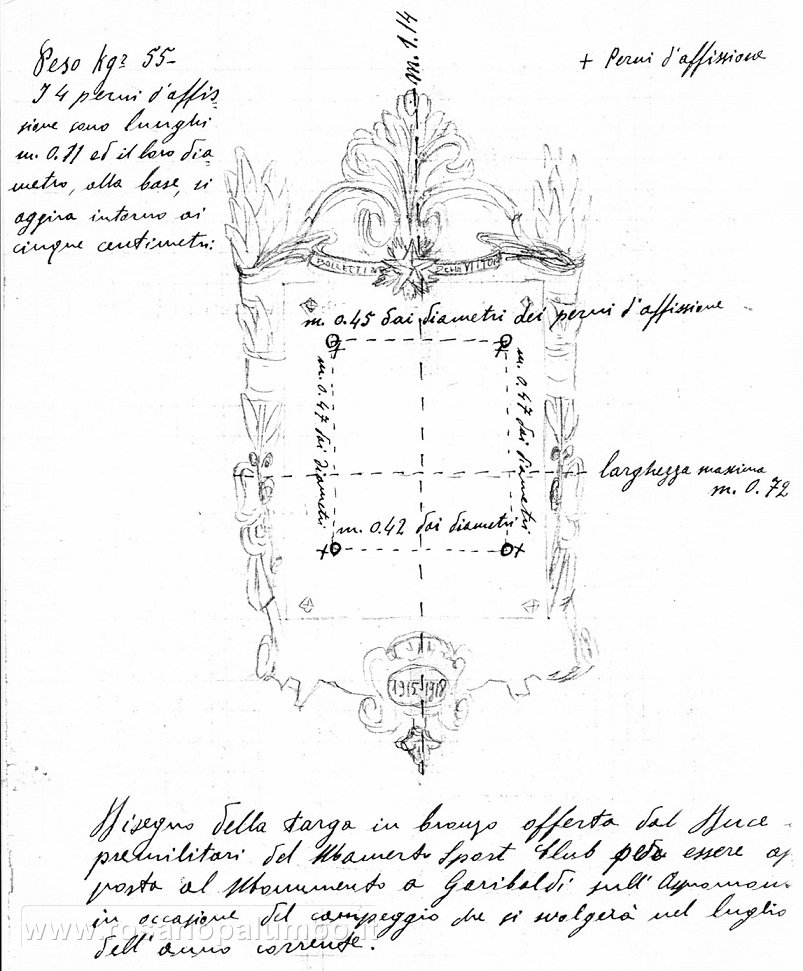 m. 1.14
Peso kg? 55-
+ Perni d'affissione
I 4 perni d'affis-
sione sono lunghi
m. 0.11 ed il loro dia
metro, alla base, si
aggira intorno ai
cinque centimetri.
BOLLETTINO DELLA VITTOR
m. 0.45 dai diametri dei perni d'affissione
m. 0.47 dai diametri
m. 0.47 dai diametri
larghezza massima
m. 0.72
m. 0.42 dai diametri
1915 1918
Disegno della targa in bronzo offerta dal Duce
premilitari del Sport Club per essere ap
posta al Monumento a Garibaldi sull'Aspromon
in occasione del campeggio che si svolgerà nel luglio
dell'anno corrente.
www.rosariopalumbo.it